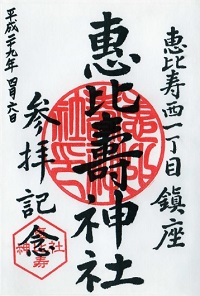 恵比寿西一丁目 鎮座
恵比壽神社
参拝記念
平成二十九年 四月六日